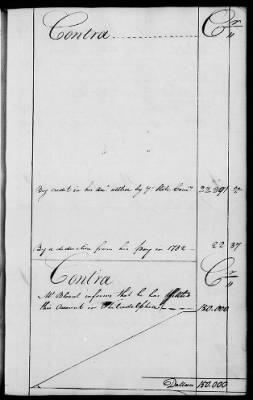 Contra Cr
By credit in his acct settled by ye State Comr 22 39
By a deduction from his pay in 1782 22 37
Contra Cr
Mr Blood informs that he has settled
this Account in Philadelphia 150.000
Dollars 150.000